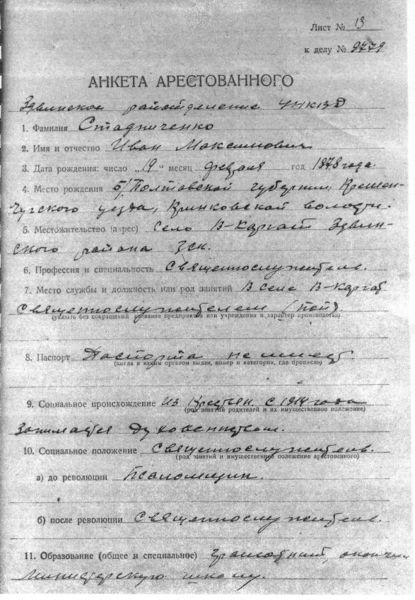 Лист № 13
к делу № 9779
АНКЕТА АРЕСТОВАННОГО
Здвинское райотделение УНКВД
1. Фамилия Стадниченко
2. Имя и отчество Иван Максимович
3. Дата рождения: число "19" месяц февраля год 1878 года
4. Место рождения б/Полтавской губернии, Кремен-
чугского уезда, Крюковской волости.
5. Местожительство (адрес) село В-Каргат Здвин-
ского района ЗСК.
6. Профессия и специальность Священнослужитель.
7. Место службы и должность или род занятий В селе В-Каргат
священнослужителем (поп)
(указать без сокращений название предприятия или учреждения и характер производства)
8. Паспорт Паспорта не имеет
(когда и каким органом выдан, номер и категория, где прописан)
9. Социальное происхождение Из крестьян, с 1914 года
(род занятий родителей и их имущественное положение)
занимается духовенством.
10. Социальное положение Священнослужитель.
(род занятий и имущественное положение арестованного)
а) до революции Псаломщик.
б) после революции Священнослужитель.
11. Образование (общее и специальное) грамотный, окончил
Министерскую школу.